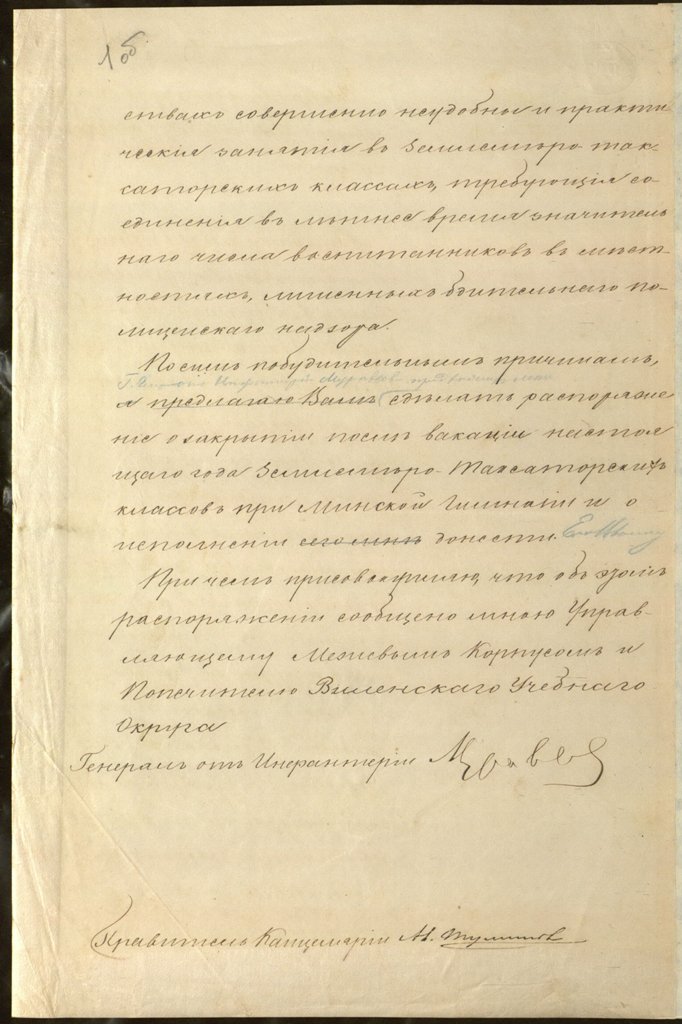 1 об
ствахъ совершенно неудобны и практи
ческія занятія въ Землемѣро-так-
саторскихъ классахъ, требующія со-
единенія въ лѣтнее время значитель
наго числа воспитанниковъ въ мѣст-
ностяхъ, лишенныхъ бдительнаго по-
лицейскаго надзора.
По симъ побудительнымъ причинамъ,
Г. Инфантеріи Муравьевъ
я предлагаю Вамъ сдѣлать распоряже
ніе о закрытіи послѣ вакаціи настоя
щаго года Землемѣро-Таксаторскихъ
классовъ при Минской Гимназіи и о
исполненіи донести.
При чемъ присовокупляю, что объ этомъ
распоряженіи сообщено мною Управ-
ляющему Межевымъ Корпусомъ и
Попечителю Виленскаго Учебнаго
Округа
Генералъ отъ Инфантеріи Муравьев
Правитель Канцеляріи А. Туминов